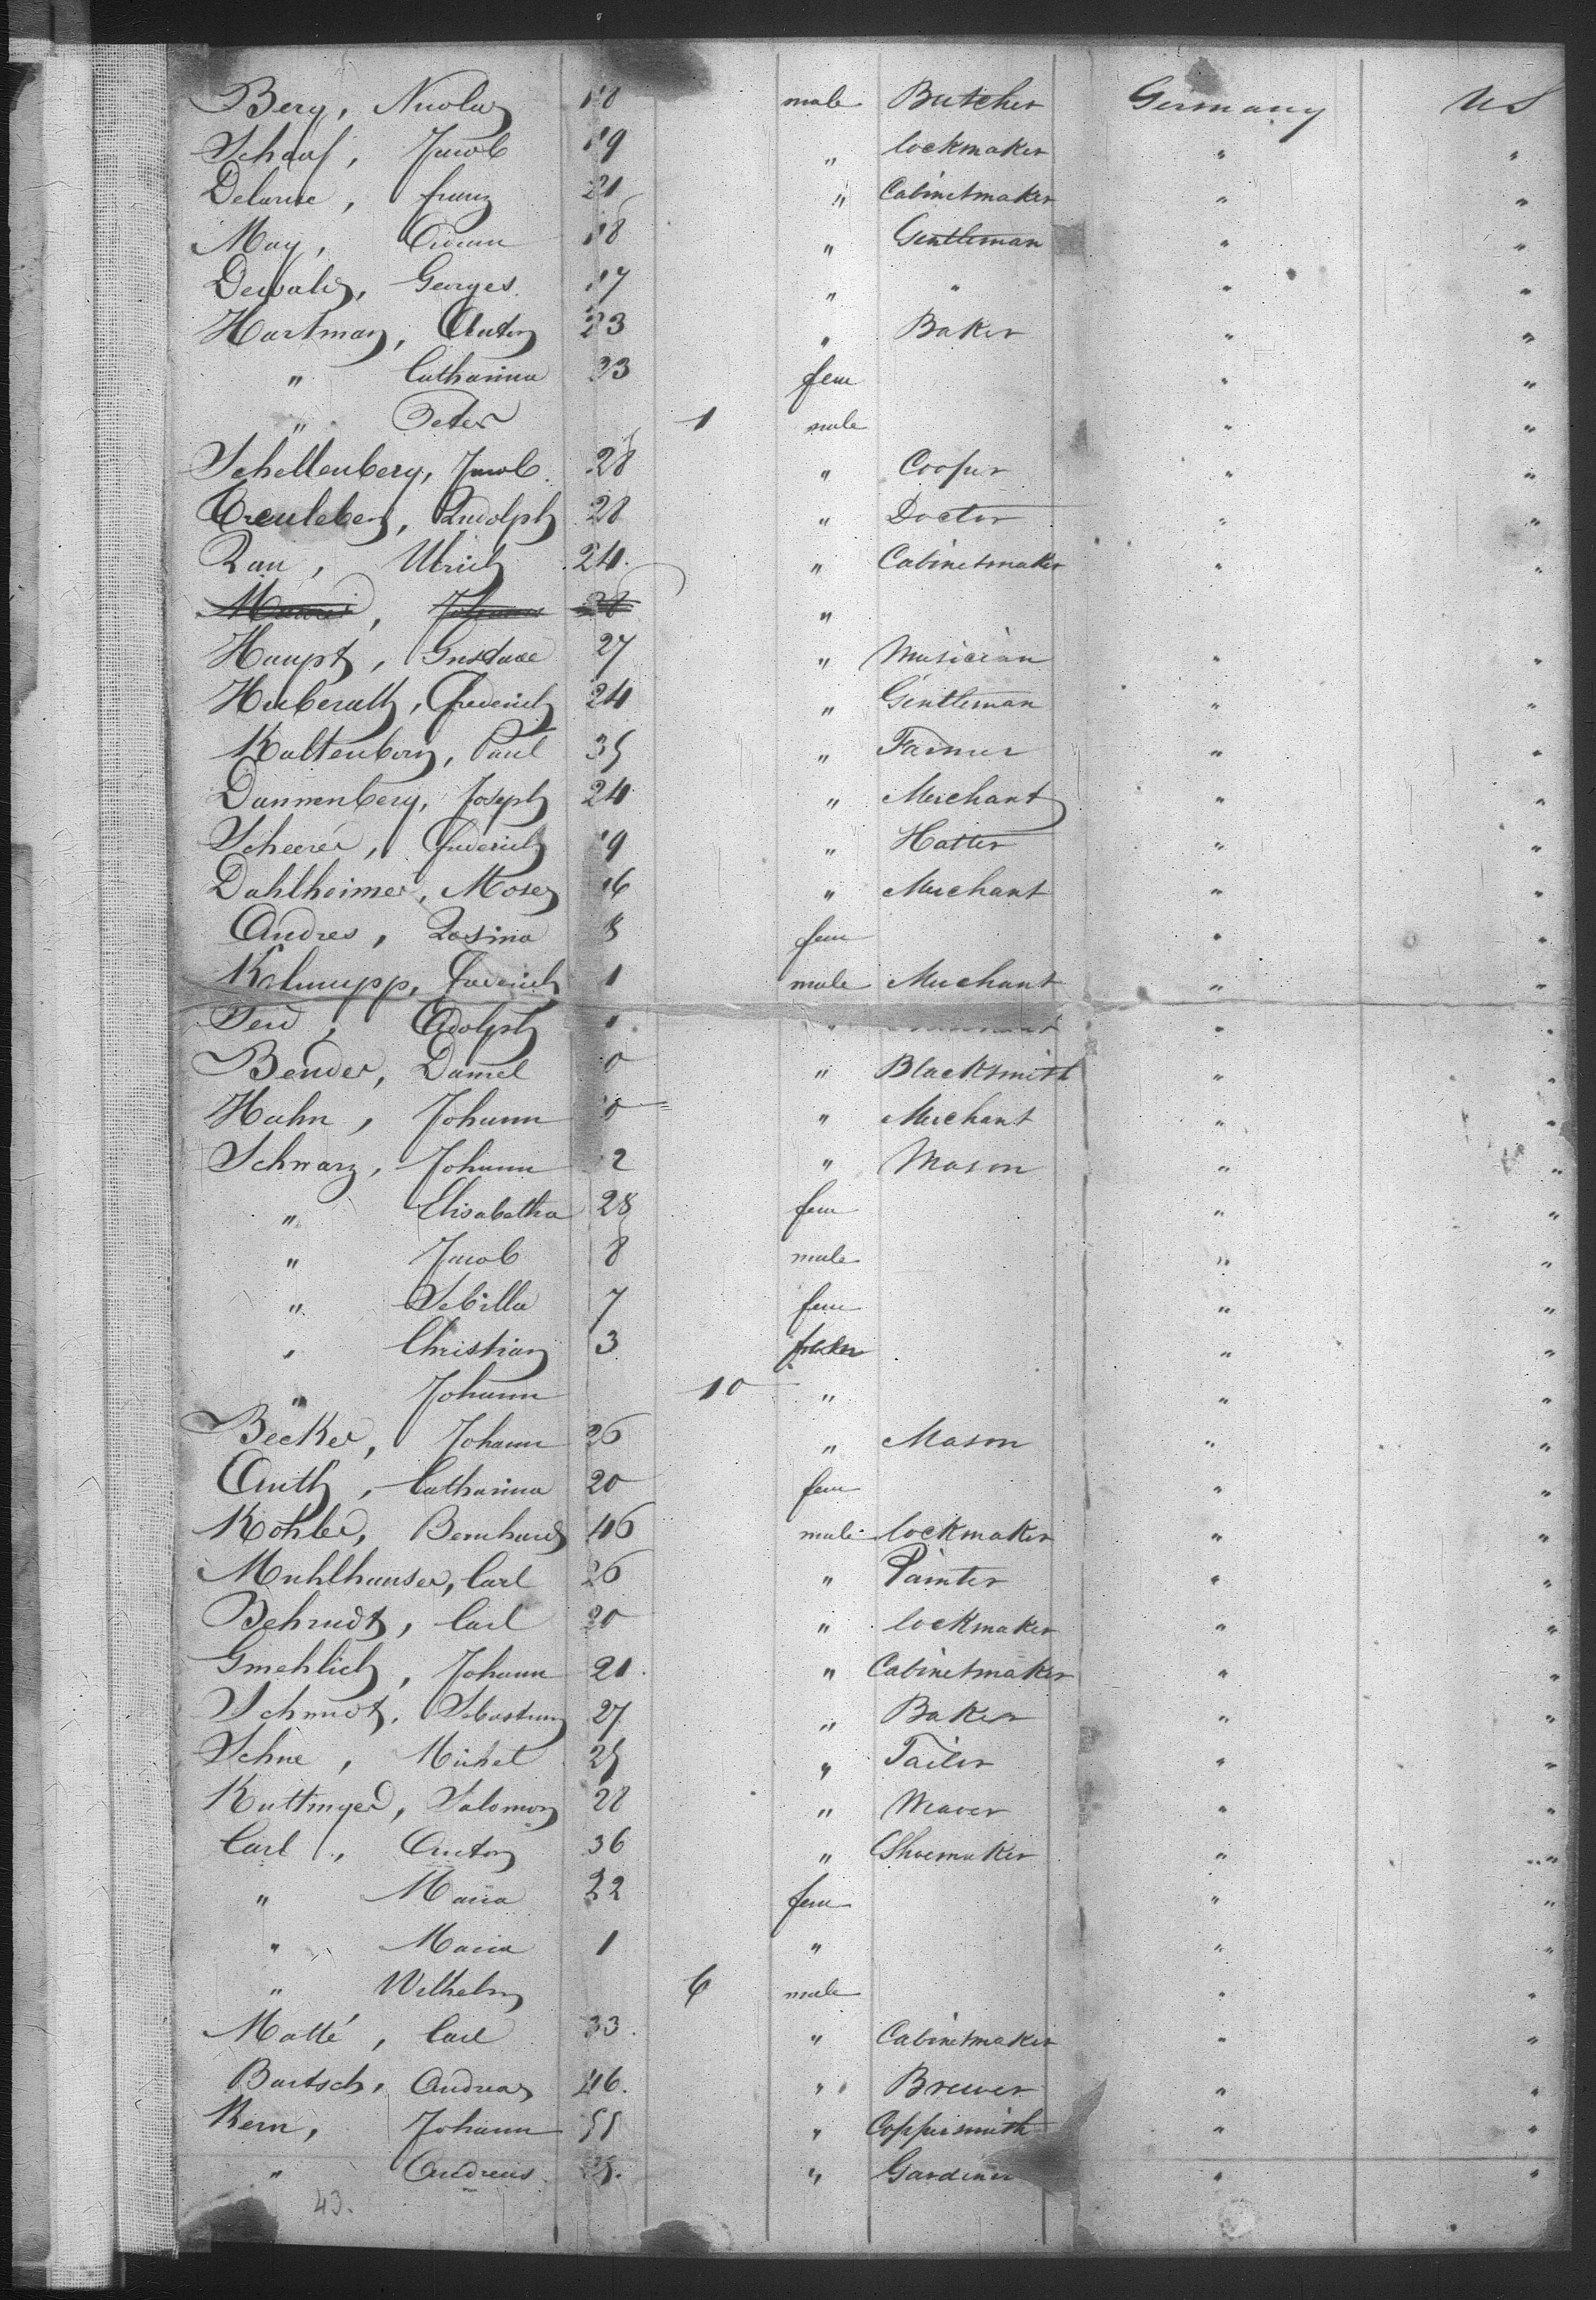 Berg, Nicolas 18 male Butcher Germany US
Schauf, Jacob 19 " lockmaker " "
Delarue, franz 21 " Cabinetmaker " "
May, 18 " Gentleman " "
Dewald, Georges 17 " " " "
Hartman, Anton 23 " Baker " "
" Catharina 23 fem " "
" Peter 1 male " "
Schellenberg, Jacob 28 " Cooper " "
Rudolph 28 " Doctor " "
Rau, Ulrich 24 " Cabinetmaker " "
28 "
Haupt, Gustave 27 " Musician " "
Huberath, Frederich 24 " Gentleman " "
Kaltenborn, Paul 35 " Farmer " "
Dannenberg, Joseph 24 " Merchant " "
Scheerer, frederich 19 " Hatter " "
Dahlheimer, Moses 16 " Merchant " "
Andres, Rosina 8 fem " "
frederich 1 male Merchant " "
Adolph " " "
Bender, Daniel 0 " Blacksmith " "
Hahn, Johann 0 " Merchant " "
Schwarz, Johann 2 " Mason " "
" Elisabetha 28 fem " "
" Jacob 8 male " "
" Sebilla 7 fem " "
" Christian 3 " "
" Johann 10 " " "
Becker, Johann 26 " Mason " "
Anth, Catharina 20 fem " "
Kohler, Bernhard 46 male lockmaker " "
Muhlhauser, Carl 26 " Painter " "
Behrndt, Carl 20 " lockmaker " "
Gmehlich, Johann 21 " Cabinetmaker " "
Schmidt, Sebastian 27 " Baker " "
Schue, Michel 25 " Tailer " "
Kuttinger, Salomon 28 " Weaver " "
Carl, Anton 36 " Shoemaker " "
" Maria 22 fem " "
" Maria 1 " " "
" Wilhelm 6 male " "
Matté, Carl 33 " Cabinetmaker " "
Bartsch, Andreas 46 " Brewer " "
Kern, Johann 51 " Coppersmith " "
" Andreas 25 " Gardener " "
43.